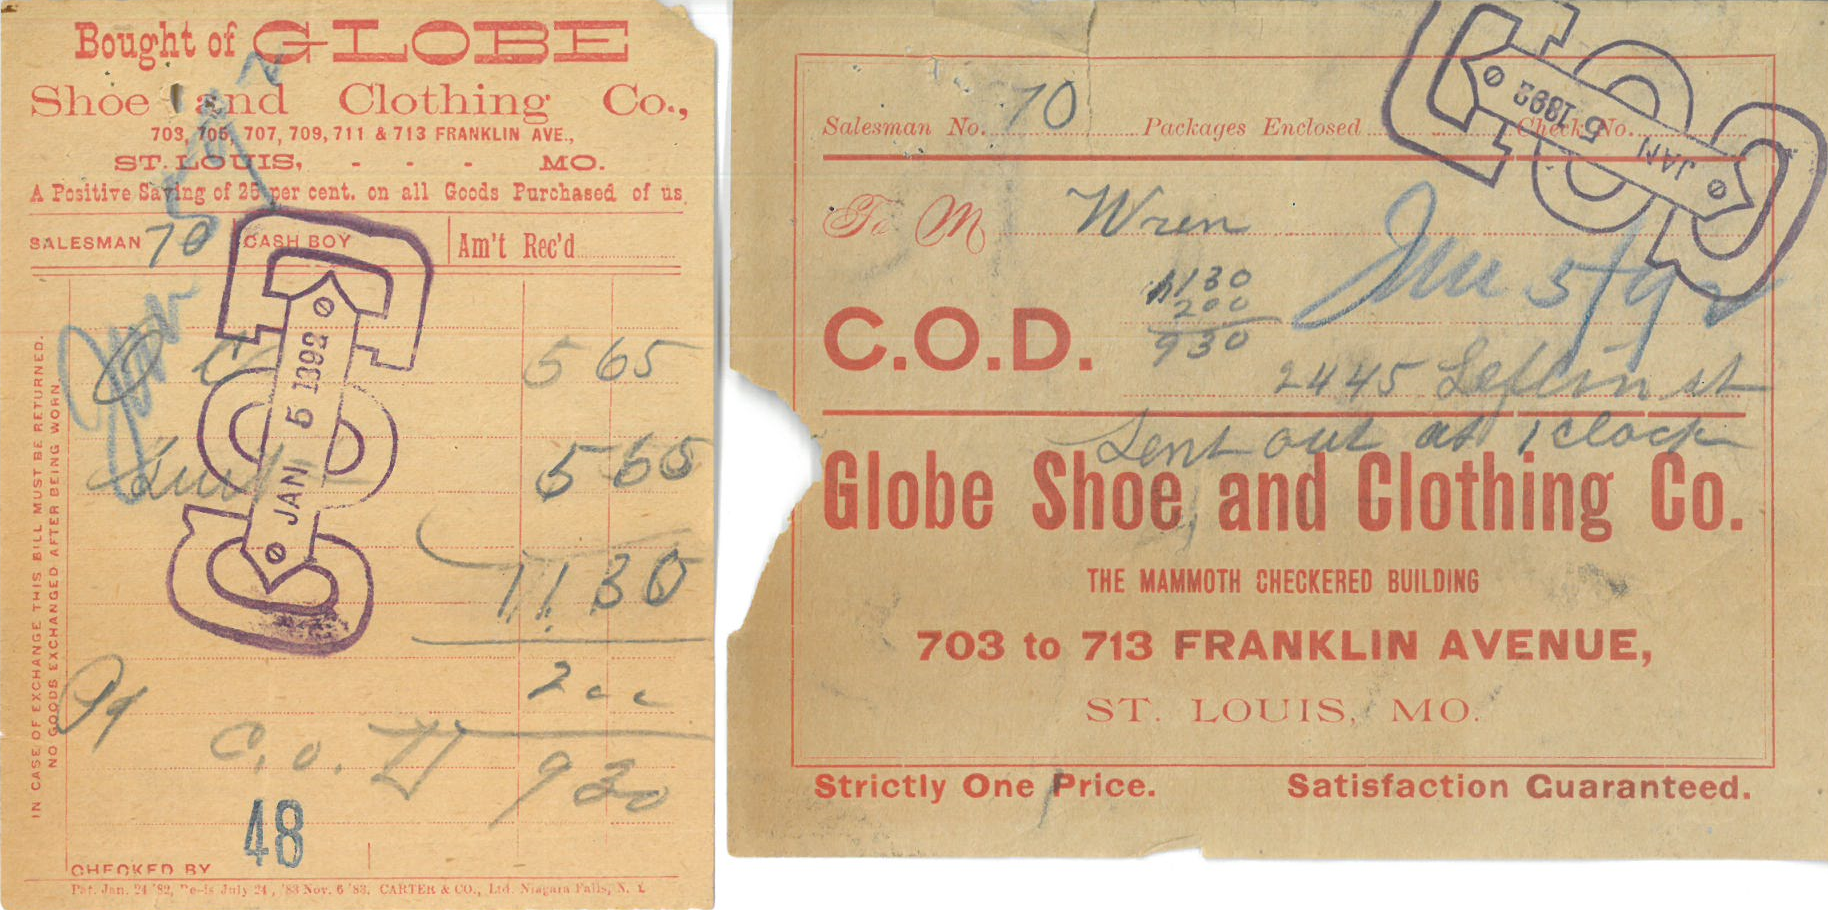 Bought of GLOBE
Shoe and Clothing Co.,
703, 705, 707, 709, 711 & 713 FRANKLIN AVE.,
ST. LOUIS, - - - MO.
A Positive Saving of 25 per cent. on all Goods Purchased of us
SALESMAN 70 CASH BOY Am't Rec'd
JAN 5 1892
5 65
5 65
11 30
2
C.O.D 9 30
48
IN CASE OF EXCHANGE THIS BILL MUST BE RETURNED.
NO GOODS EXCHANGED AFTER BEING WORN
CHECKED BY
Pat. Jan. 24 '82, Re-is July 24, '83 Nov. 6 '83, CARTER & CO., Ltd. Niagara Falls, N. Y.
Salesman No. 70 Packages Enclosed Check No.
JAN 5 1892
To M Wren
Jan 5/92
1130
200
930
C.O.D.
2445 st
Sent out at 1 clock
Globe Shoe and Clothing Co.
THE MAMMOTH CHECKERED BUILDING
703 to 713 FRANKLIN AVENUE,
ST. LOUIS, MO.
Strictly One Price. Satisfaction Guaranteed.